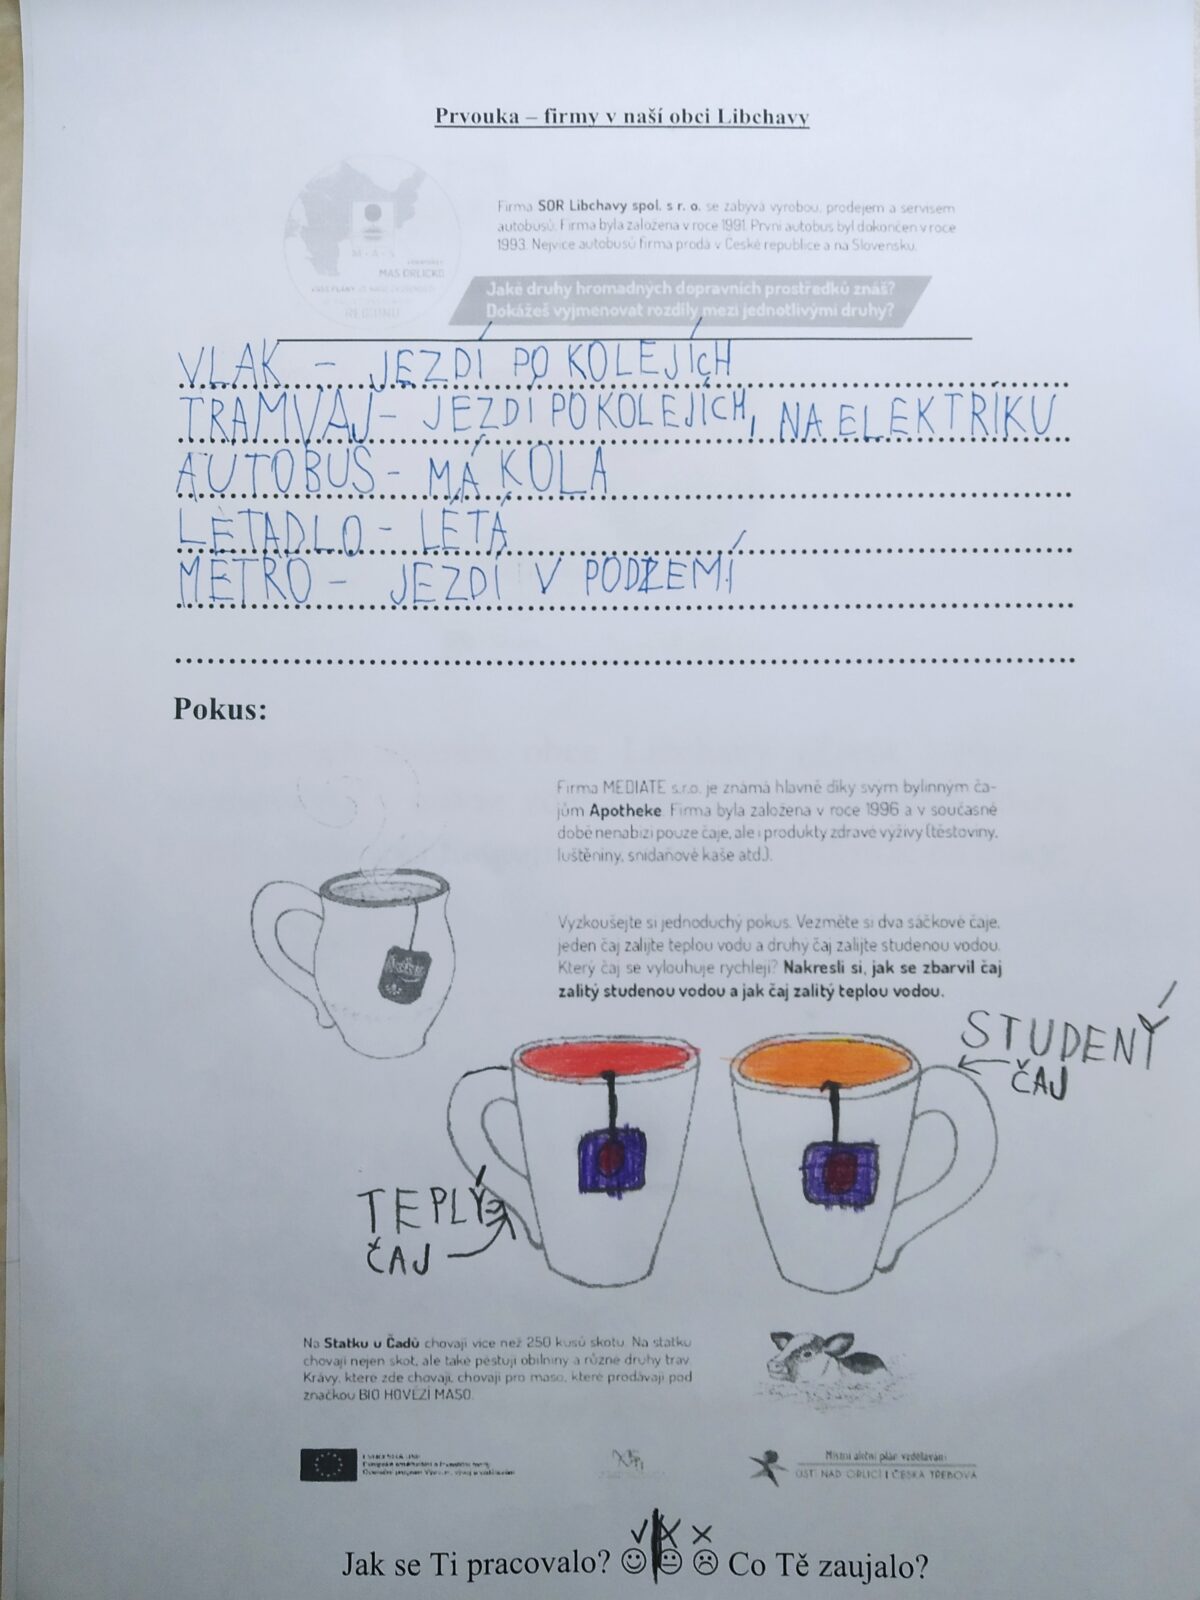 Prvouka – firmy v naší obci Libchavy
Firma SOR Libchavy spol. s r. o. se zabývá výrobou, prodejem a servisem
autobusů. Firma byla založena v roce 1991. První autobus byl dokončen v roce
1993. Nejvíce autobusů firma prodá v České republice a na Slovensku.
M·A·S
MAS ORLICKO
REGIONU
Jaké druhy hromadných dopravních prostředků znáš?
Dokážeš vyjmenovat rozdíly mezi jednotlivými druhy?
VLAK – JEZDÍ PO KOLEJÍcH
TRAMVAJ – JEZDÍ PO KOLEJÍCH, NA ELEKTRIKU
AUTOBUS – MÁ KOLA
LETADLO – LÉTÁ
METRO – JEZDÍ V PODZEMÍ
Pokus:
Firma MEDIATE s.r.o. je známá hlavně díky svým bylinným ča-
jům Apotheke. Firma byla založena v roce 1996 a v současné
době nenabízí pouze čaje, ale i produkty zdravé výživy (těstoviny,
luštěniny, snídaňové kaše atd.).
Vyzkoušejte si jednoduchý pokus. Vezměte si dva sáčkové čaje,
jeden čaj zalijte teplou vodu a druhý čaj zalijte studenou vodou.
Který čaj se vylouhuje rychleji? Nakresli si, jak se zbarvil čaj
zalitý studenou vodou a jak čaj zalitý teplou vodou.
STUDENÝ
ČAJ
TEPLÝ
ČAJ
Na Statku u Čadů chovají více než 250 kusů skotu. Na statku
chovají nejen skot, ale také pěstují obilniny a různé druhy trav.
Krávy, které zde chovají, chovají pro maso, které prodávají pod
značkou BIO HOVĚZÍ MASO.
EVROPSKÁ UNIE
Evropské strukturální a investiční fondy
Operační program Výzkum, vývoj a vzdělávání
Místní akční plán vzdělávání
ÚSTÍ NAD ORLICÍ | ČESKÁ TŘEBOVÁ
Jak se Ti pracovalo? ☺ 😐 ☹ Co Tě zaujalo?